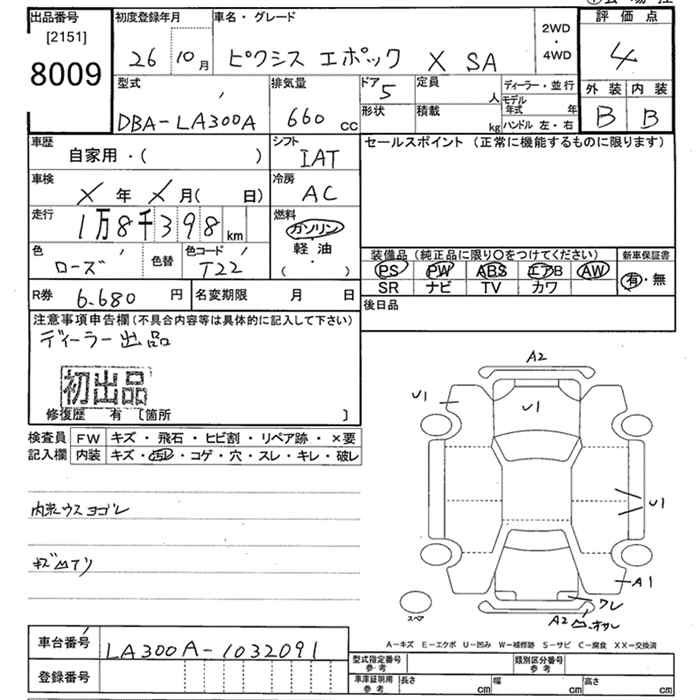 出品番号
[2151]
8009
初度登録年月
26 10月
車名・グレード
ピクシス エポック X SA
2WD
・
4WD
評価点
4
外装 内装
B B
型式
DBA-LA300A
排気量
660 cc
ドア
5
形状
定員
人
積載
kg
ディーラー・並行
モデル年式 年
ハンドル 左・右
車歴
自家用・( )
シフト
IAT
セールスポイント (正常に機能するものに限ります)
車検
X 年 X 月( 日)
冷房
AC
走行
1万8千398 km
燃料
ガソリン
軽油
( ・ )
色
ローズ
色替
色コード
T22
装備品 (純正品に限り〇をつけてください)
PS PW ABS エアB AW
SR ナビ TV カワ
新車保証書
有・無
R券 6.680 円
名変期限 月 日
後日品
注意事項申告欄(不具合内容等は具体的に記入して下さい)
ディーラー出品
初出品
修復歴 有 〔箇所 〕
検査員記入欄
FW キズ・飛石・ヒビ割・リペア跡・×要
内装 キズ・汚レ・コゲ・穴・スレ・キレ・破レ
内装ウスヨゴレ
A2
U1
U1
U1
A1
ワレ
A2
スペア
A−キズ E−エクボ U−凹み W−補修跡 S−サビ C−腐食 XX−交換済
車台番号 LA300A-1032091
登録番号
型式指定番号 参考
類別区分番号 参考
車庫証明用 参考
長さ cm
幅 cm
高さ cm